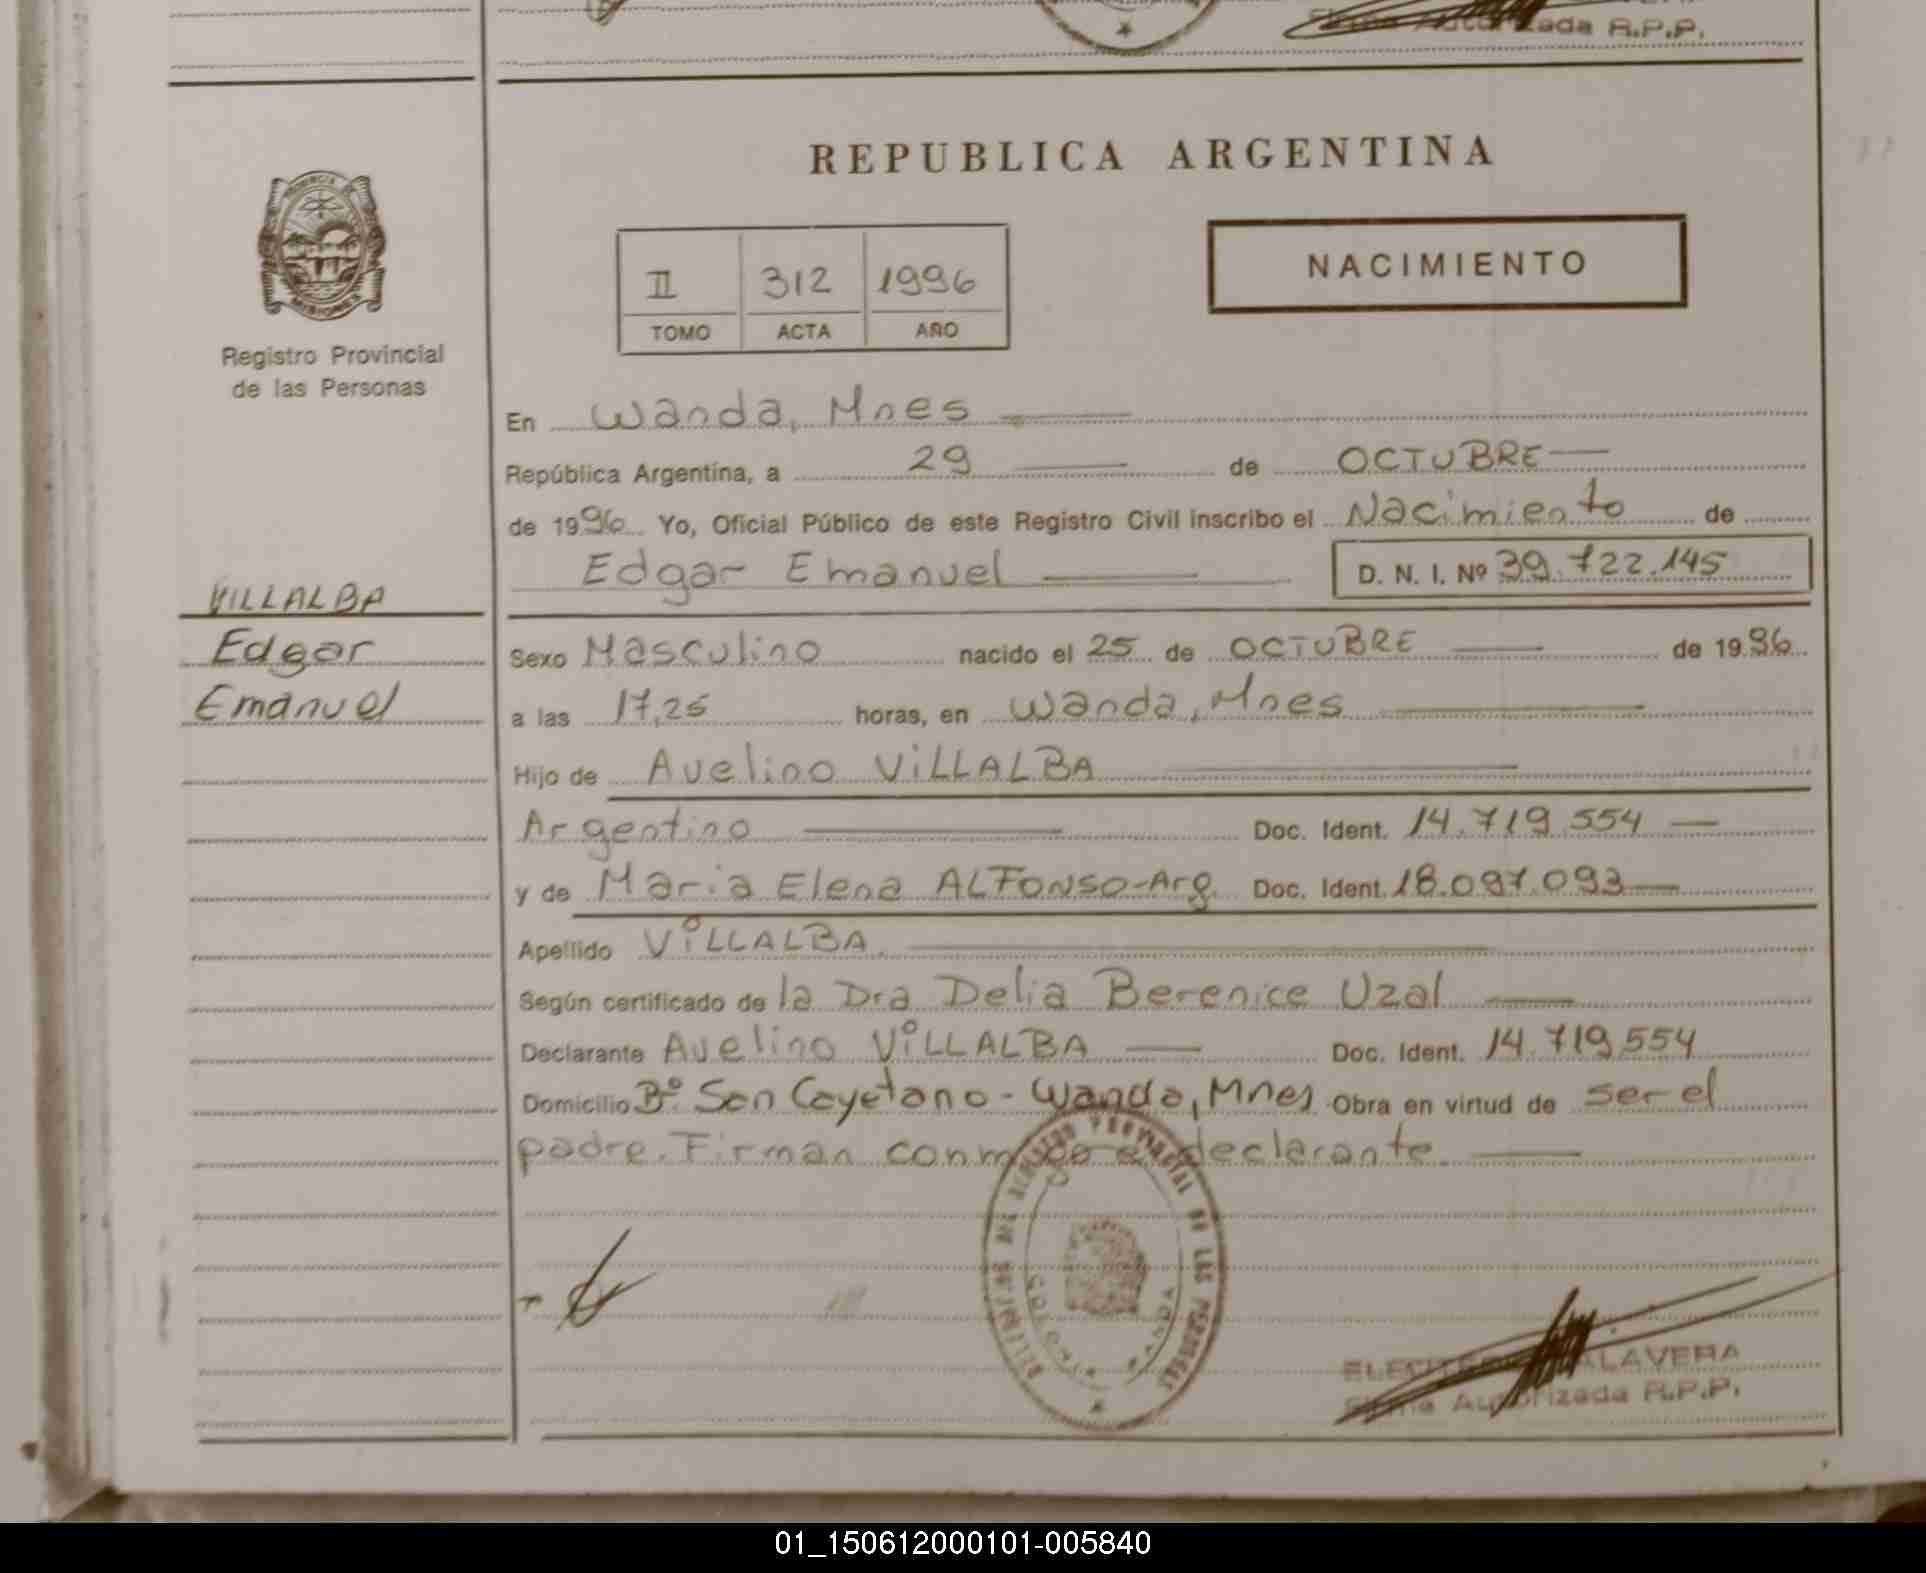 Firma Autorizada R.P.P.
REPUBLICA ARGENTINA
PROVINCIA DE
MISIONES
Registro Provincial
de las Personas
II 312 1996
TOMO ACTA AÑO
NACIMIENTO
En Wanda, Mnes
República Argentina, a 29 de OCTUBRE
de 1996 Yo, Oficial Público de este Registro Civil inscribo el Nacimiento de
Edgar Emanuel D. N. I. Nº 39.722.145
VILLALBA
Edgar
Emanuel
Sexo Masculino nacido el 25 de OCTUBRE de 1996
a las 17,25 horas, en Wanda, Mnes
Hijo de Avelino VILLALBA
Argentino Doc. Ident. 14.719.554
y de Maria Elena ALFONSO-Arg. Doc. Ident. 18.097.093
Apellido VILLALBA.
Según certificado de la Dra Delia Berenice Uzal
Declarante Avelino VILLALBA Doc. Ident. 14.719.554
Domicilio Bº San Cayetano - Wanda, Mnes Obra en virtud de ser el
padre. Firman conmigo el declarante.
PROVINCIAL DE LAS PERSONAS
WANDA
TALAVERA
Firma Autorizada R.P.P.
01_150612000101-005840